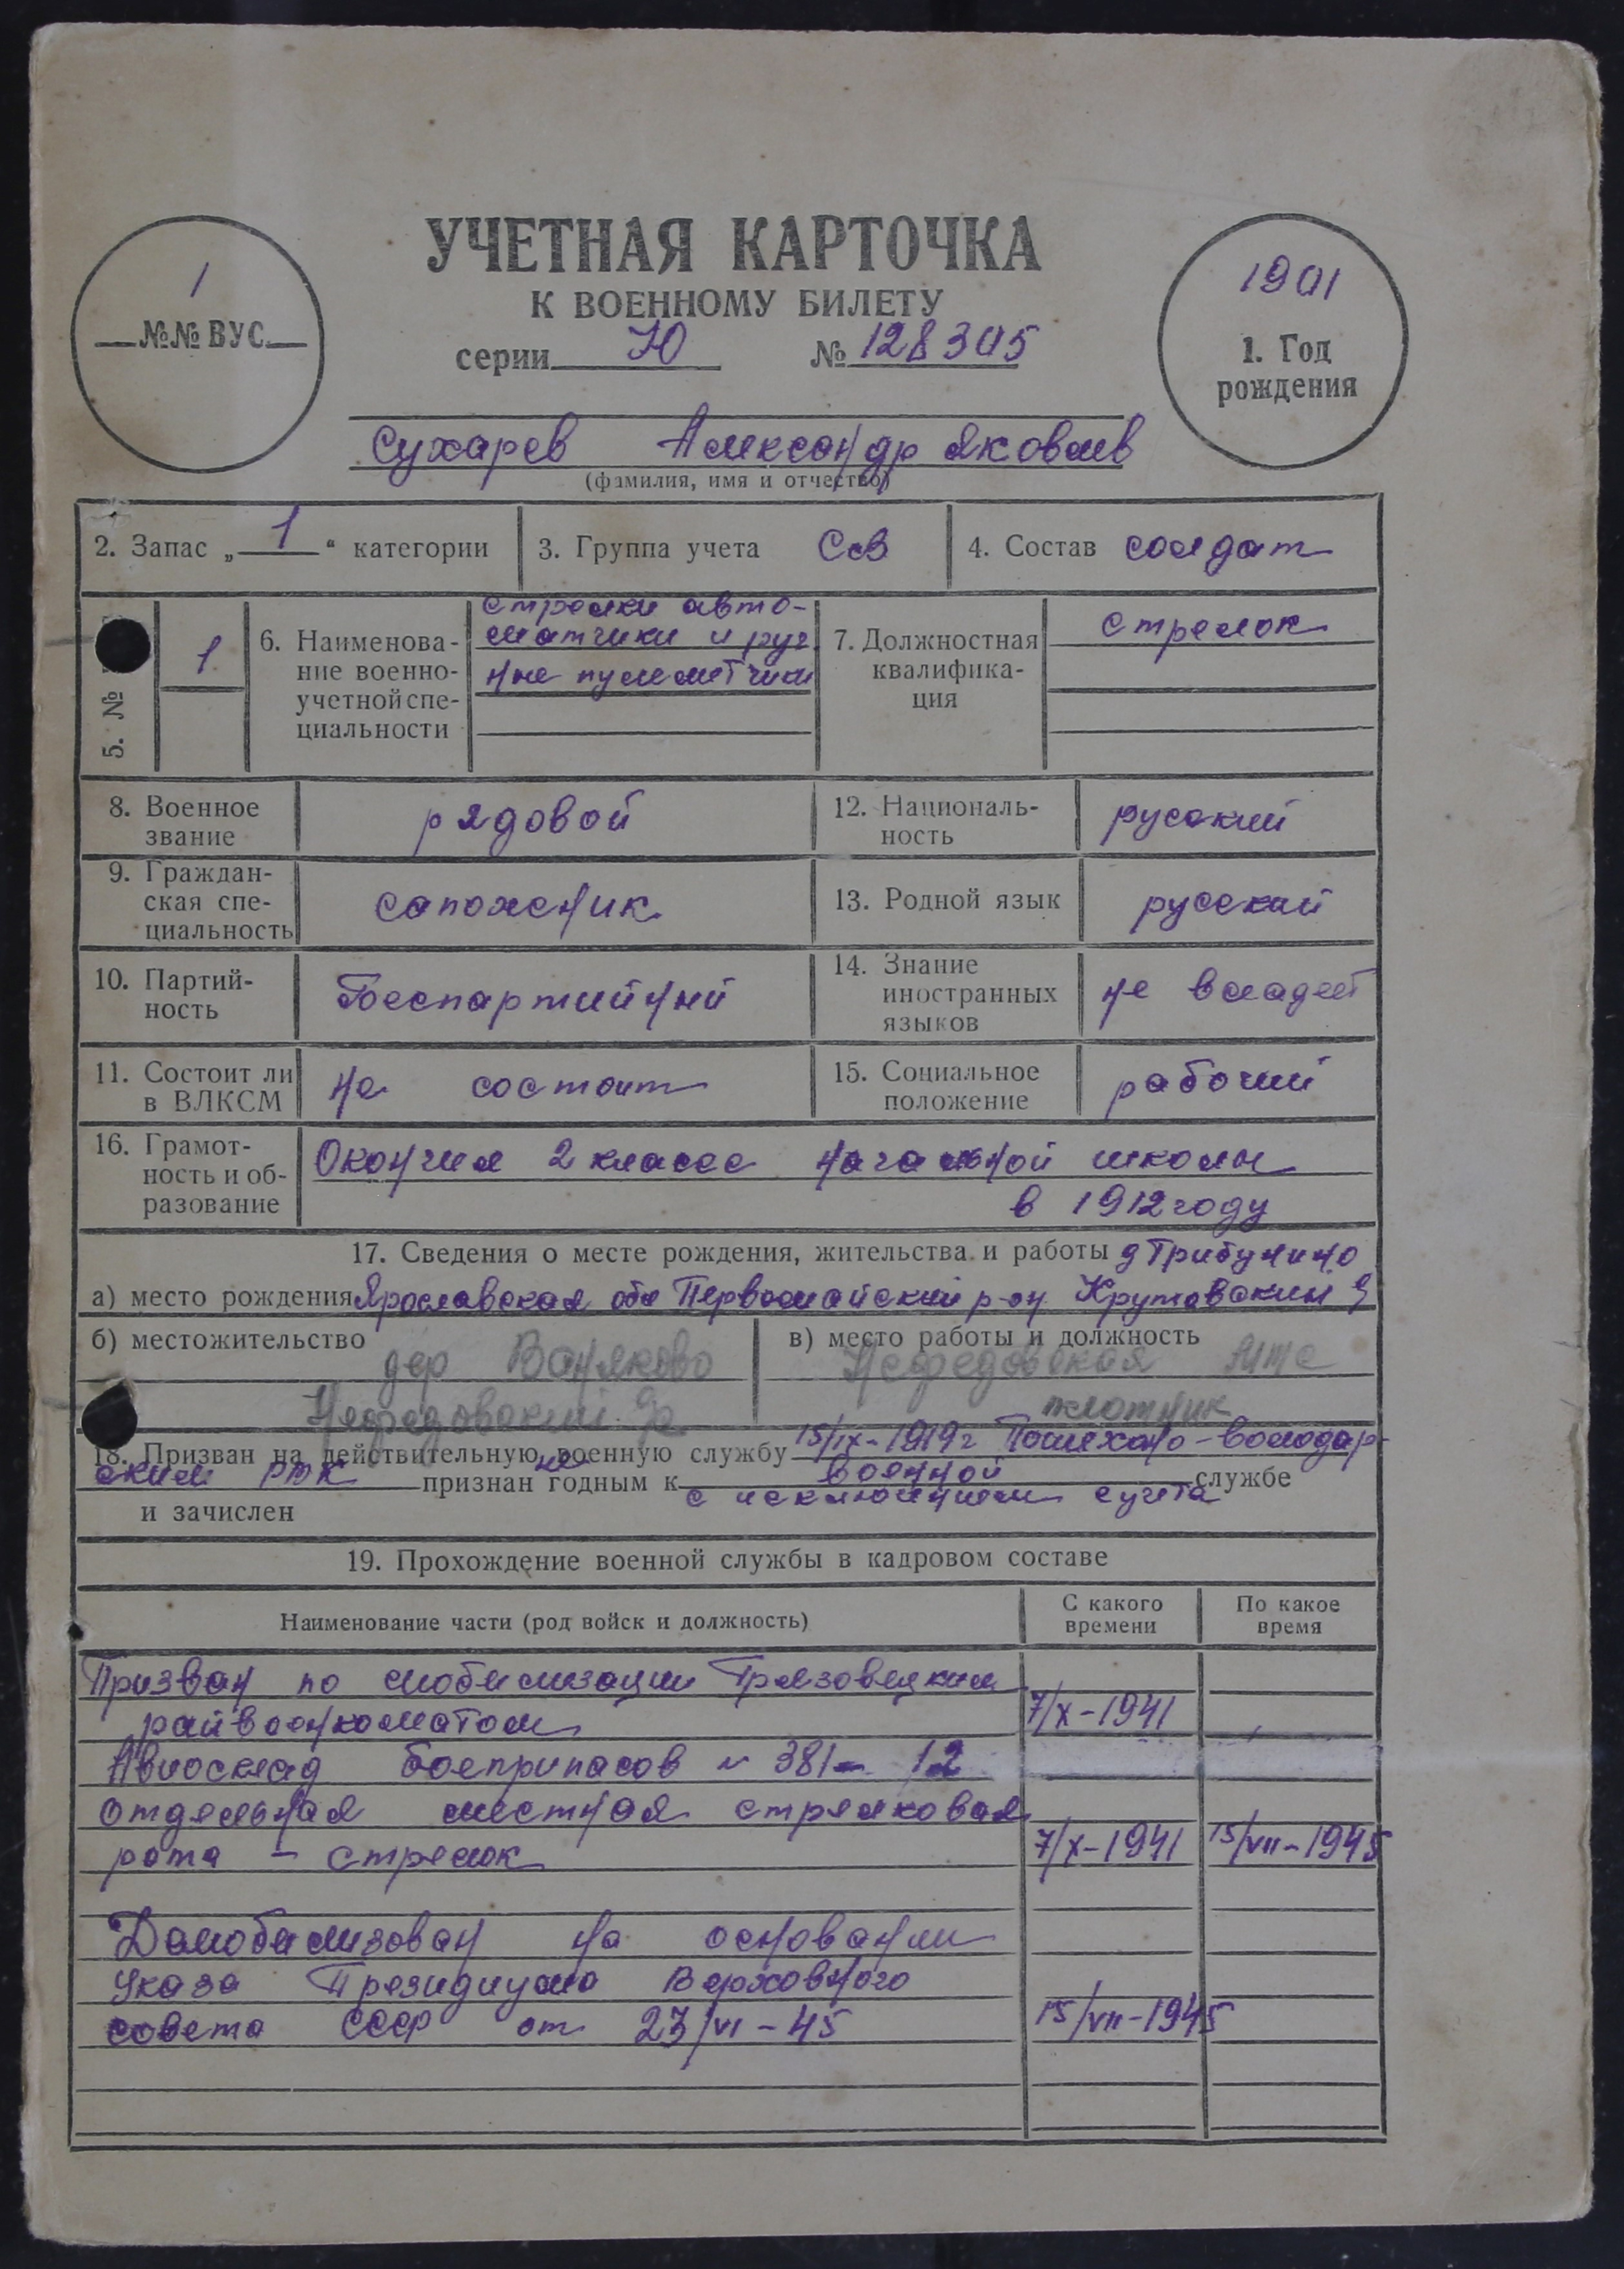 УЧЕТНАЯ КАРТОЧКА
К ВОЕННОМУ БИЛЕТУ
серии Ю № 128305
1
№№ ВУС
1901
1. Год
рождения
Сухарев Александр Яковлев
(фамилия, имя и отчество)
2. Запас „ 1 “ категории
3. Группа учета СсВ
4. Состав солдат
5. №
1
6. Наименова-
ние военно-
учетной спе-
циальности
стрелки авто-
матчики и руч
ные пулеметчики
7. Должностная
квалифика-
ция
стрелок
8. Военное
звание
рядовой
12. Националь-
ность
русский
9. Граждан-
ская спе-
циальность
сапожник
13. Родной язык
русский
10. Партий-
ность
Беспартийный
14. Знание
иностранных
языков
не владеет
11. Состоит ли
в ВЛКСМ
не состоит
15. Социальное
положение
рабочий
16. Грамот-
ность и об-
разование
Окончил 2 класса начальной школы
в 1912 году
17. Сведения о месте рождения, жительства и работы д Трибунино
а) место рождения Ярославская обл Первомайский р-он Крутовский
б) местожительство
дер Ваняково
Нефедовский
в) место работы и должность
Нефедовская
плотник
18. Призван на действительную военную службу 15/IX-1919г Пошехоно-Володар-
ским РВК признан не годным к военной службе
с исключением с учета
и зачислен
19. Прохождение военной службы в кадровом составе
Наименование части (род войск и должность)
С какого
времени
По какое
время
Призван по мобилизации Грязовецким
райвоенкоматом 7/X-1941
Авиосклад боеприпасов № 381 - 12
отдельная местная стрелковая
рота - стрелок 7/X-1941 15/VII-1945
Демобилизован на основании
Указа Президиума Верховного
совета СССР от 23/VI-45 15/VII-1945